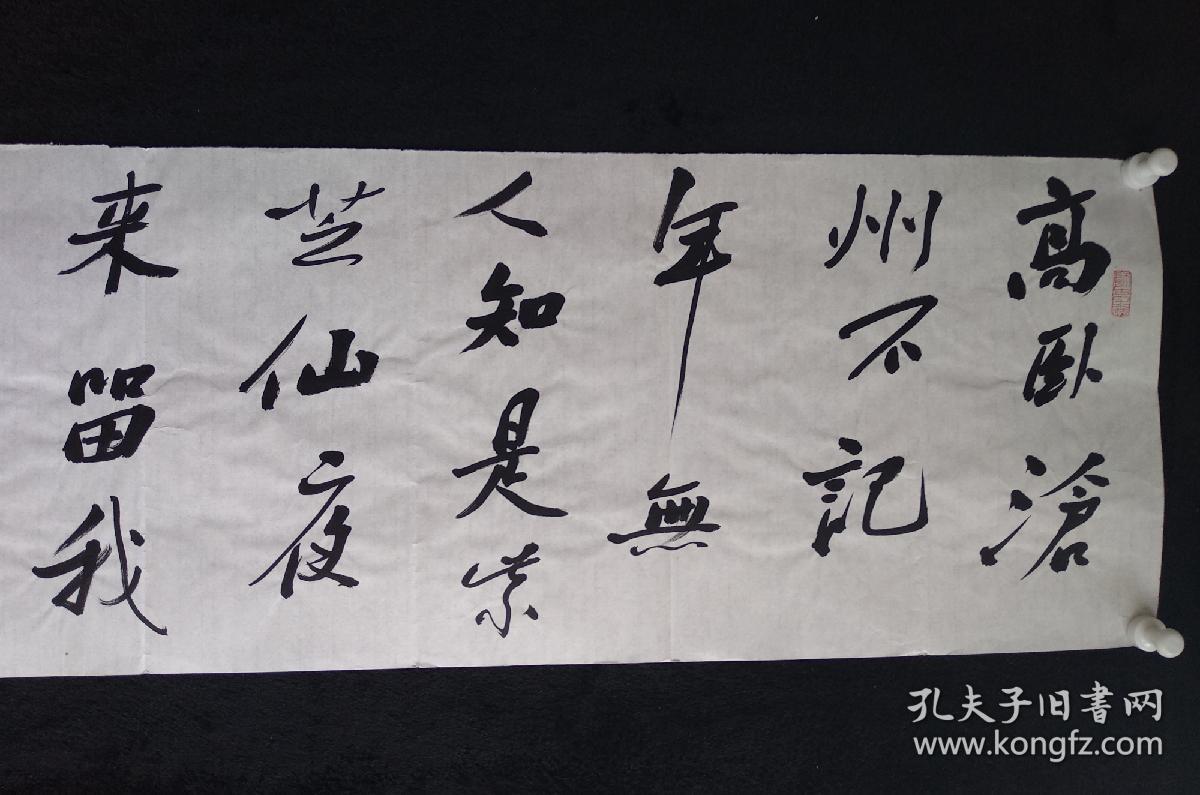 高卧滄
州不記
年無
人知是紫
芝仙夜
来留我
孔夫子旧書网
www.kongfz.com